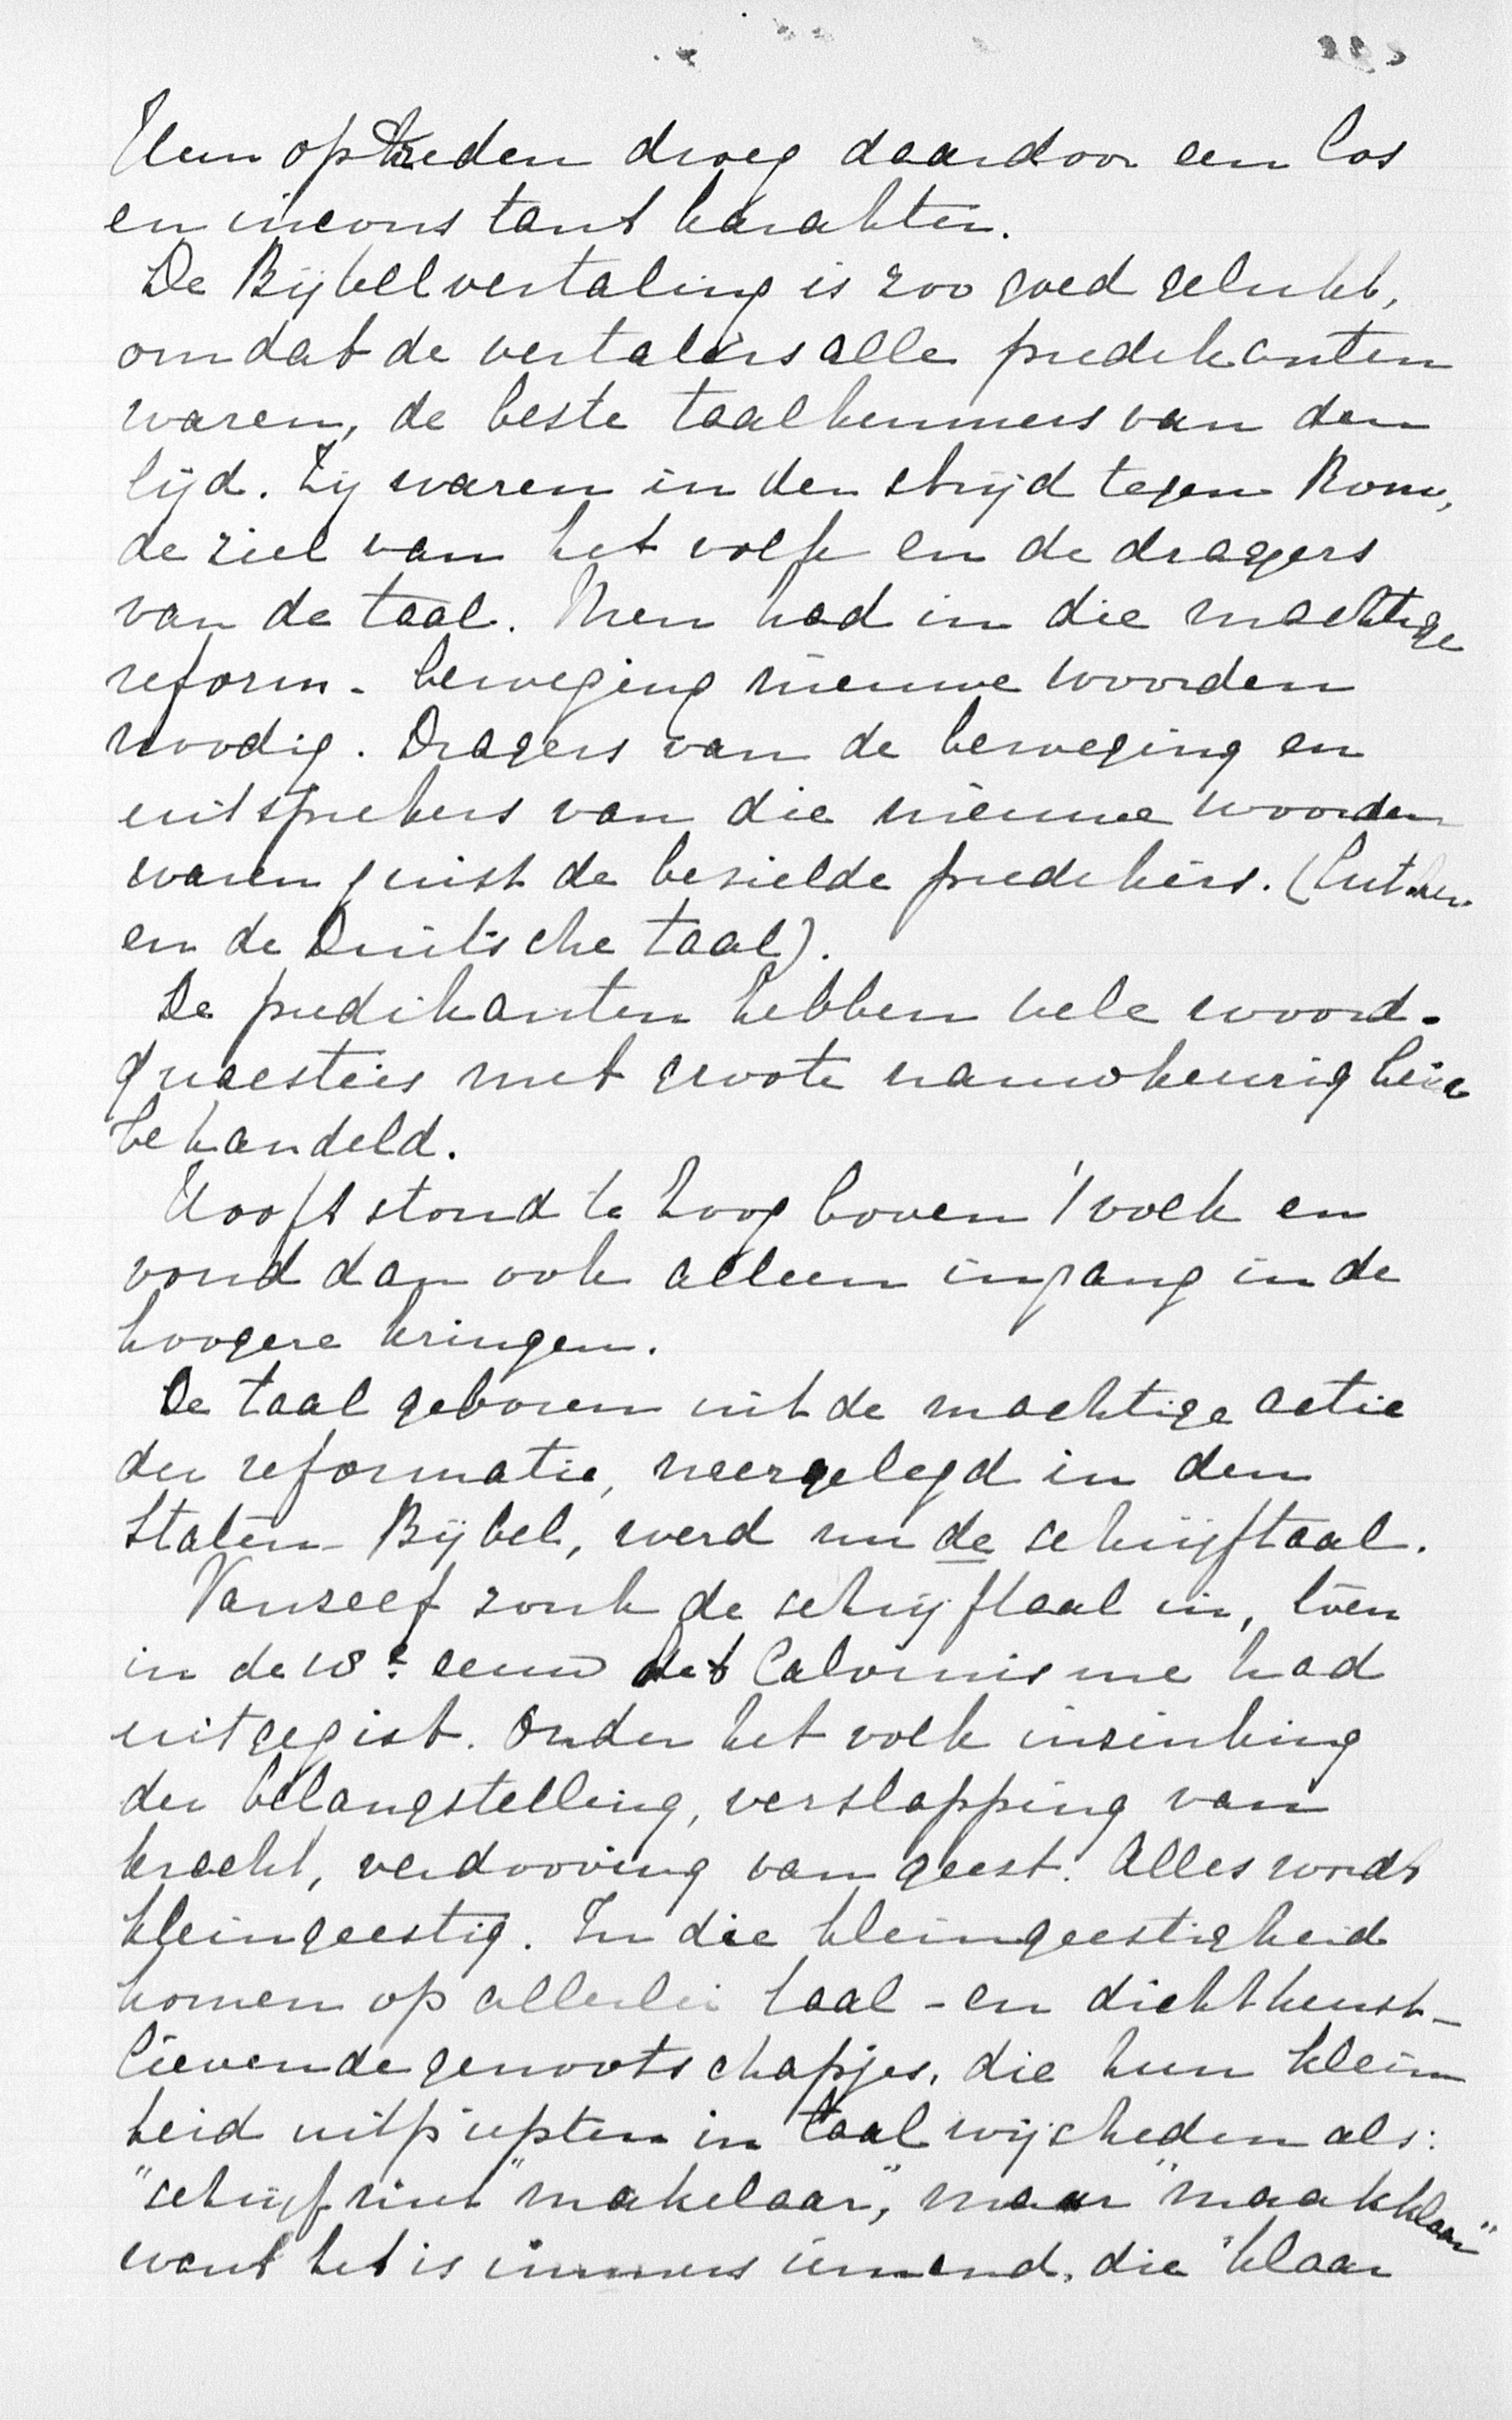 Hun optreden droeg daardoor een los
en inconstant karakter.
De Bijbelvertaling is zoo goed gelukt,
omdat de vertalers alle predikanten
waren, de beste taalkenners van den
tijd. Zij waren in den strijd tegen Rome,
de ziel van het volk en de dragers
van de taal. Men had in die machtige
reform-beweging nieuwe woorden
noodig. Dragers van de beweging en
uitsprekers van die nieuwe woorden
waren juist de bezielde predikers. (Luther
en de Duitsche taal).
De predikanten hebben vele woord-
quaesties met groote nauwkeurigheid
behandeld.
Hooft stond te hoog boven 't volk en
vond dan ook alleen ingang in de
hoogere kringen.
De taal geboren uit de machtige actie
der reformatie, neergelegd in den
Staten-Bijbel, werd nu de schrijftaal.
Vanzelf zonk de schrijftaal in, toen
in de 18e eeuw het Calvinisme had
uitgegist. Onder het volk inzinking
der belangstelling, verslapping van
kracht, verdooving van geest. Alles wordt
kleingeestig. In die kleingeestigheid
komen op allerlei taal- en dichtkunst-
lievende genootschapjes, die hun klein
heid uitpiepten in taalwijsheden als:
"schrijf niet "makelaar", maar "maakklaar"
want het is immers iemand, die "klaar